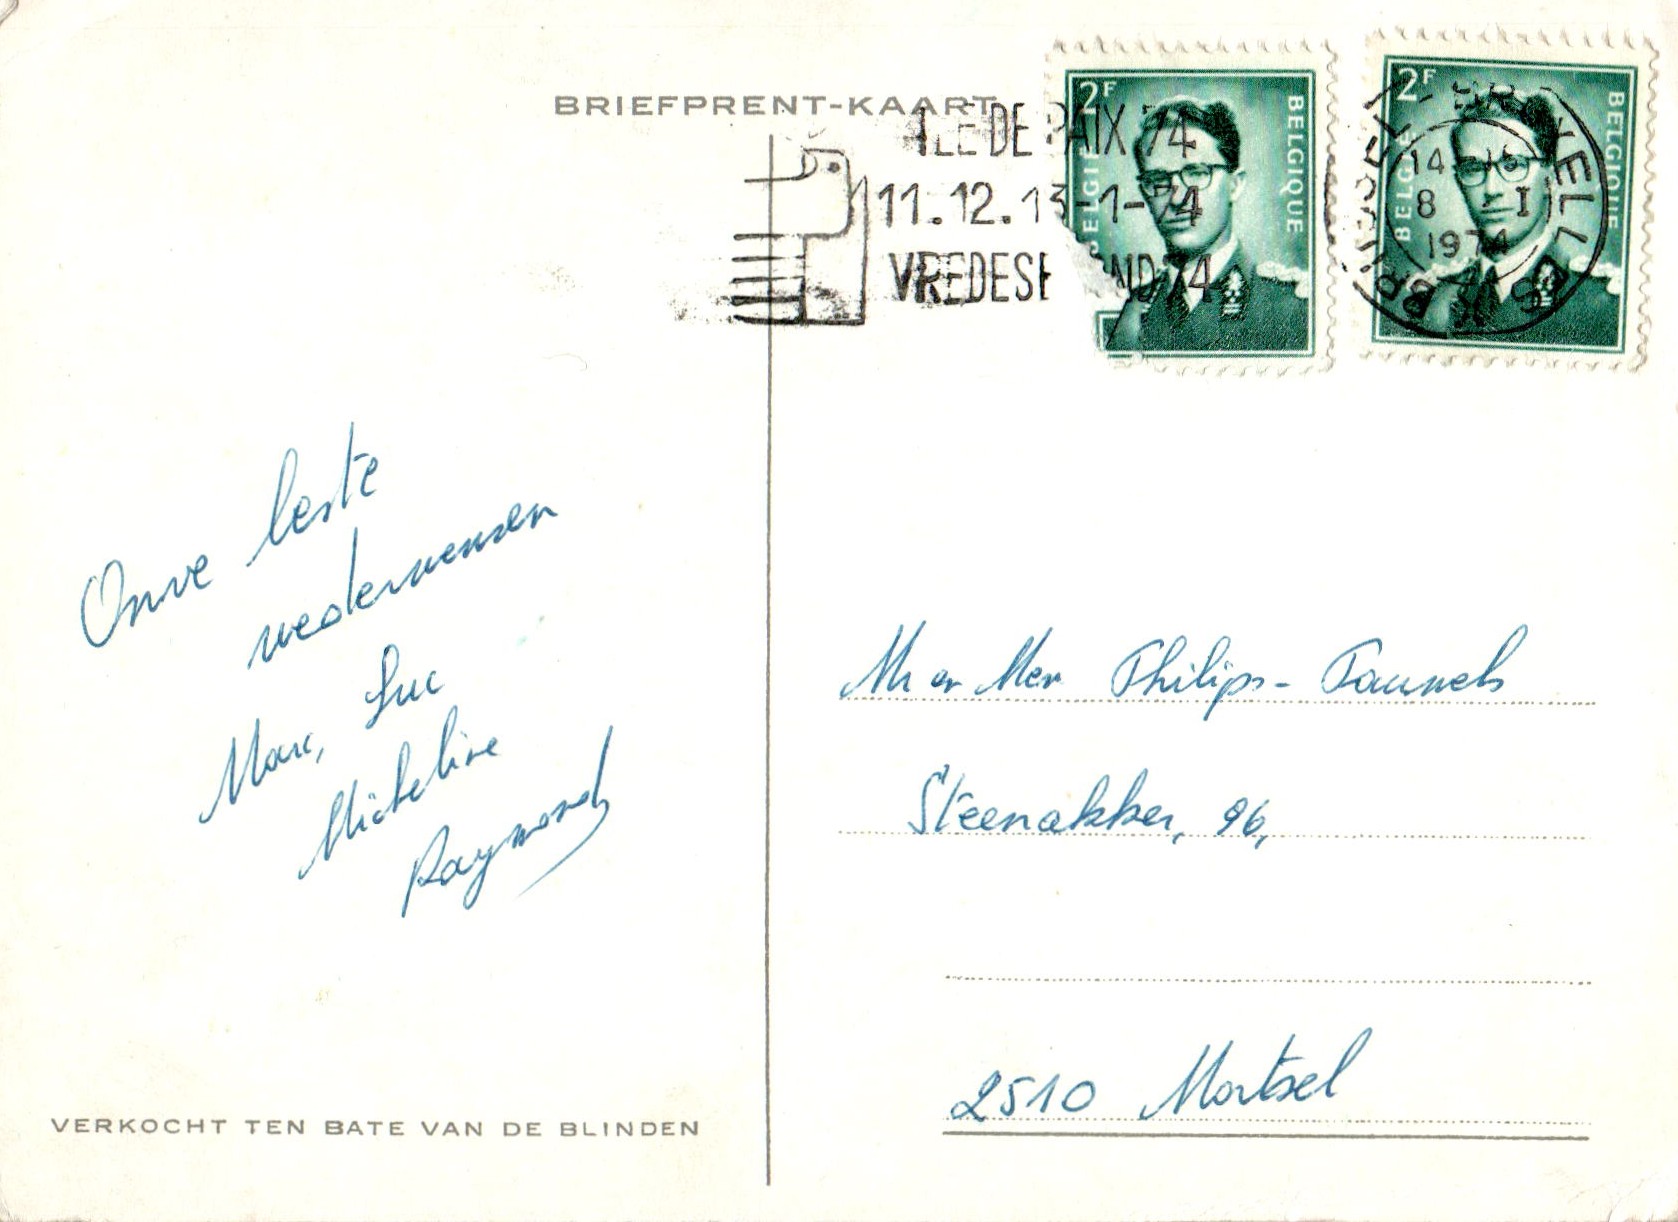 BRIEFPRENT-KAART
ILE DE PAIX 74
11.12.13-1-74
VREDESE AND 74
2F
BELGIË
BELGIQUE
2F
BELGIË
BELGIQUE
BRUSSEL 1 - BRUXELLES
14-15
8 - I
1974
Onze beste
wederwensen
Marc, Luc
Micheline
Raymond
Mr en Mevr Philips - Pauwels
Steenakker, 96,
2510 Mortsel
VERKOCHT TEN BATE VAN DE BLINDEN